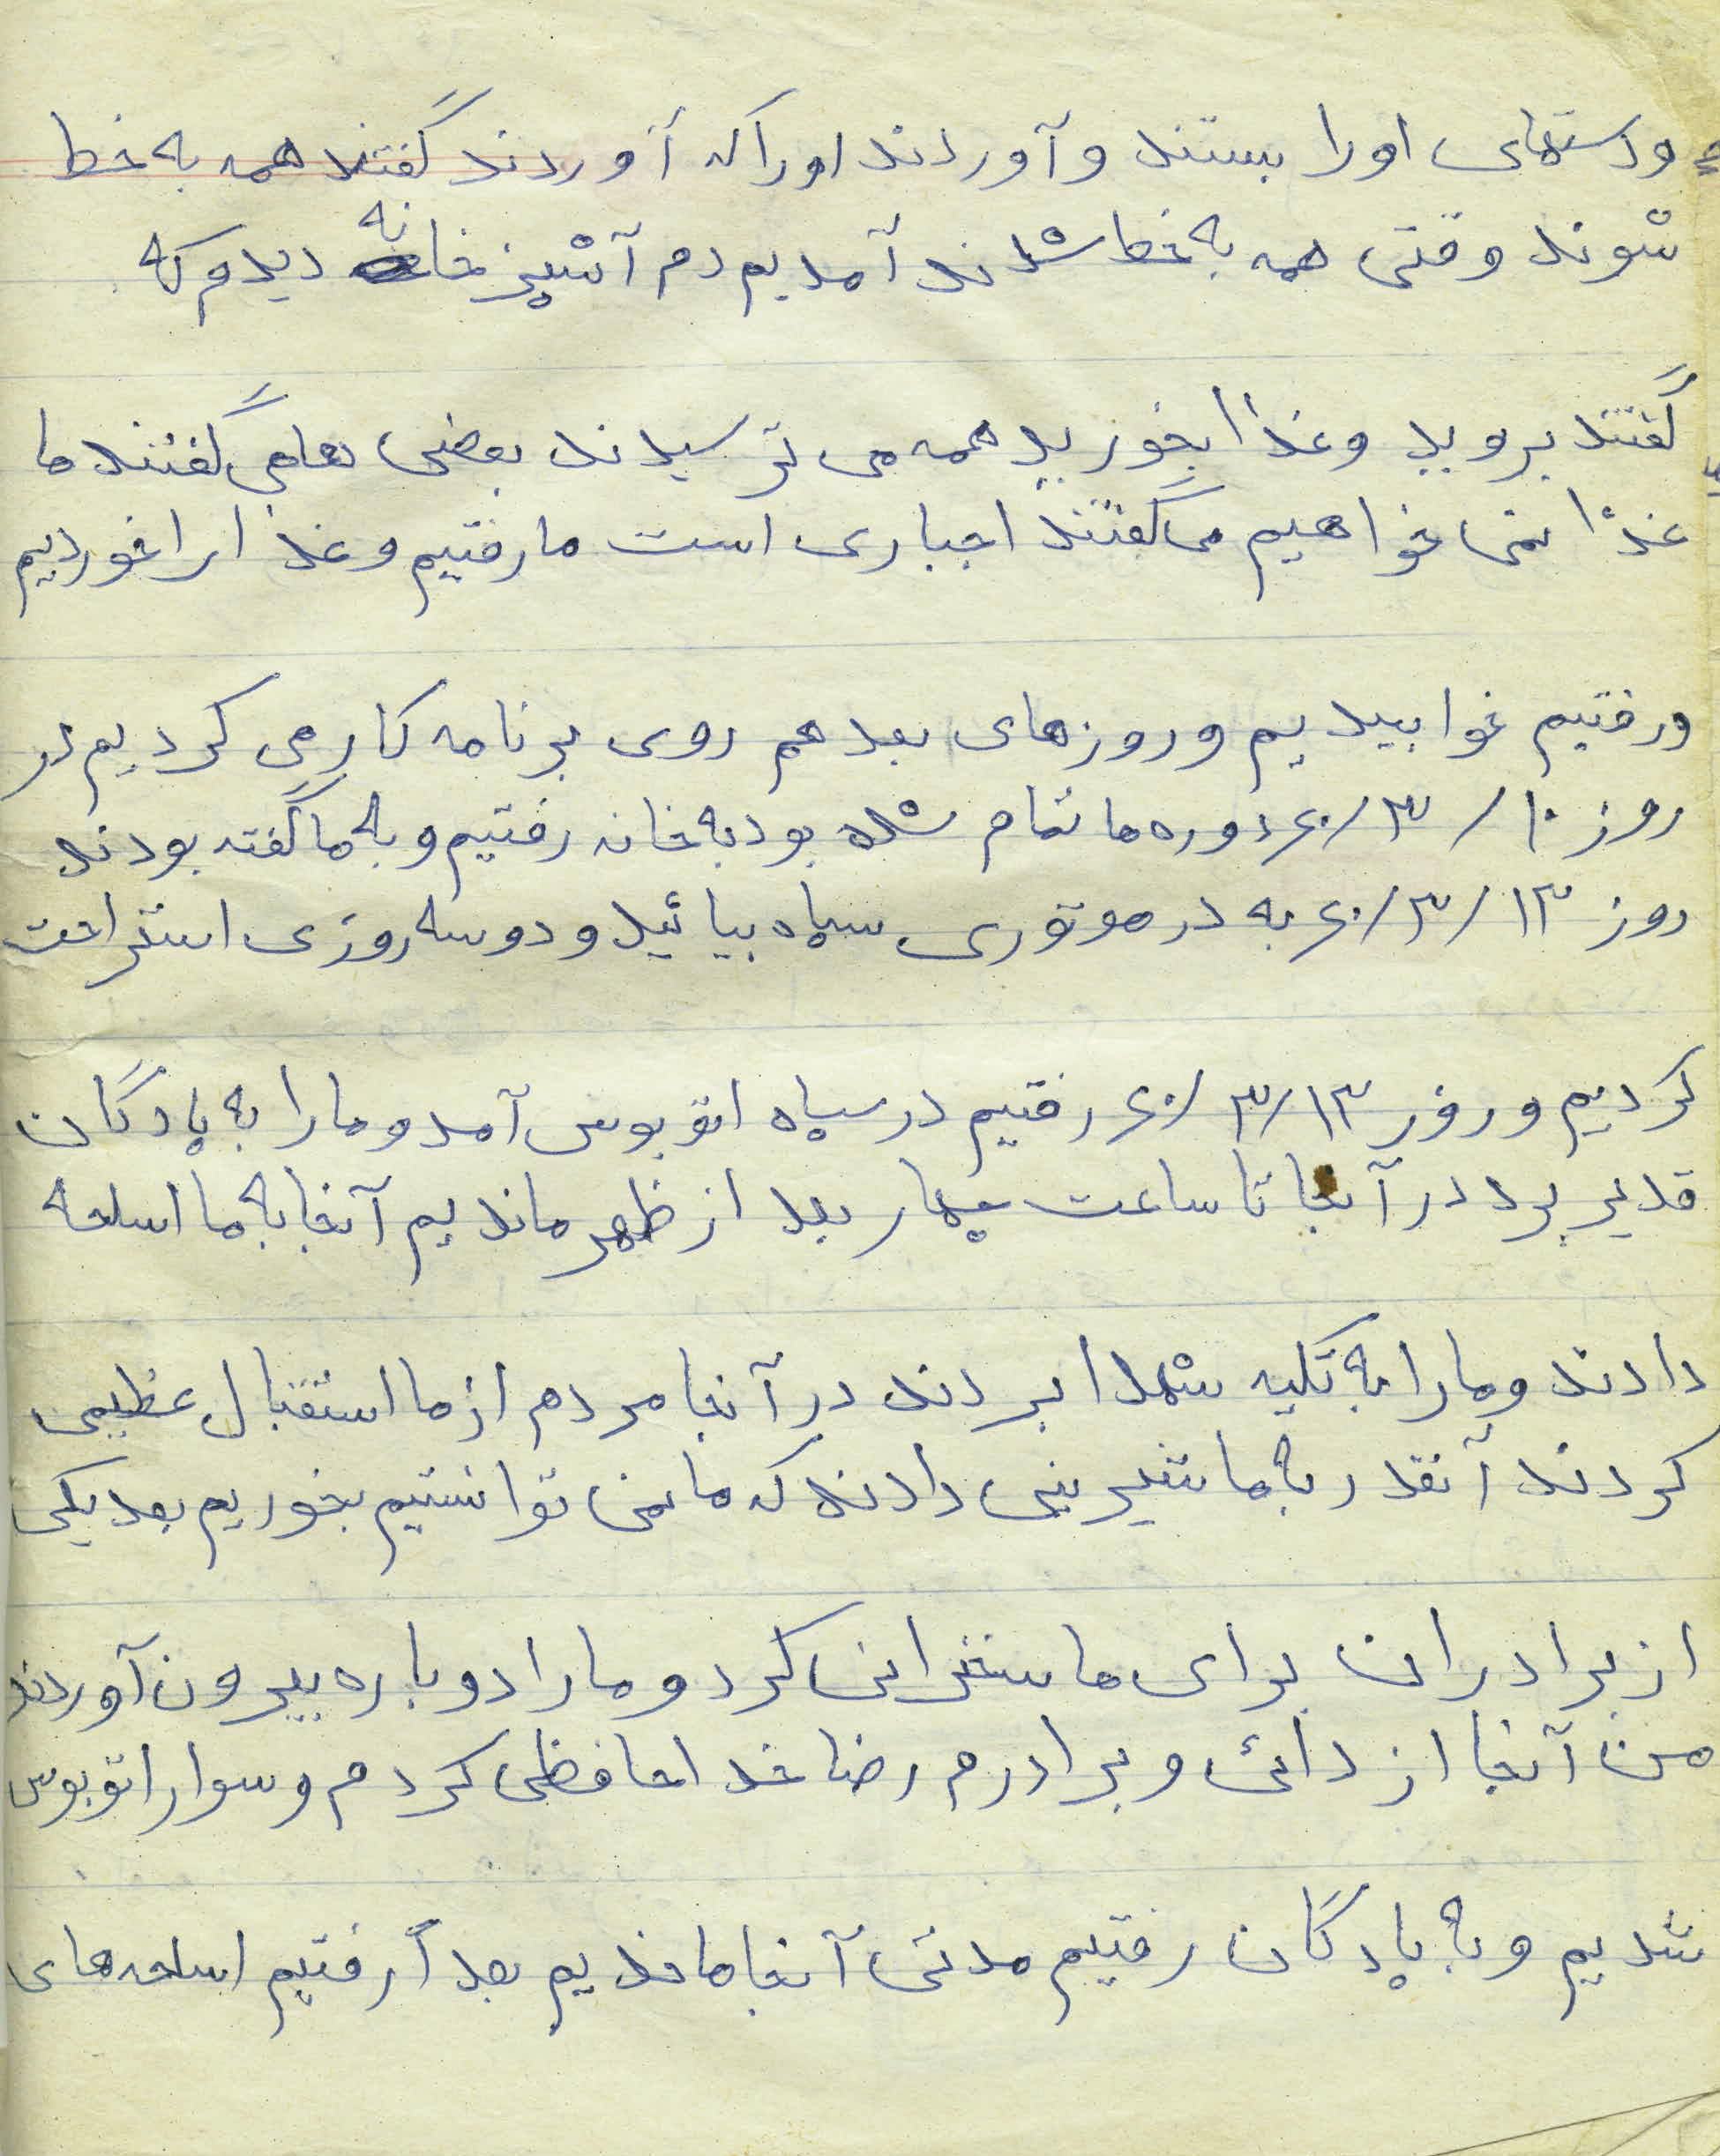 ودستهای اورا بستند وآوردند اوراکه آوردند گفتند همه به خط
شوند وقتی همه به خط شدند آمدیم دم آشپزخانه دیدم که
گفتند بروید وغذا بخورید همه می ترسیدند بعضی هامی گفتند ما
غذا نمی خواهیم می گفتند اجباری است ما رفتیم وغذا را خوردیم
ورفتیم خوابیدیم وروزهای بعد هم روی برنامه کارمی کردیم در
روز ۱۰/۳/۶۰ دوره ما تمام شده بود به خانه رفتیم و به ما گفته بودند
روز ۱۳/۳/۶۰ به در موتوری سپاه بیائید و دو سه روزی استراحت
کردیم و روز ۱۳/۳/۶۰ رفتیم در سپاه اتوبوس آمد و مارا به پادگان
قدیر برد در آنجا تا ساعت چهار بعد از ظهر ماندیم آنجا به ما اسلحه
دادند ومارا به تکیه شهدا بردند در آنجا مردم از ما استقبال عظیمی
کردند آنقدر به ما شیرینی دادند که ما نمی توانستیم بخوریم بعد یکی
از برادران برای ما سخنرانی کرد و مارا دوباره بیرون آوردند
من آنجا از دائی و برادرم رضا خداحافظی کردم و سوار اتوبوس
شدیم و به پادگان رفتیم مدتی آنجا ماندیم بعداً رفتیم اسلحه های